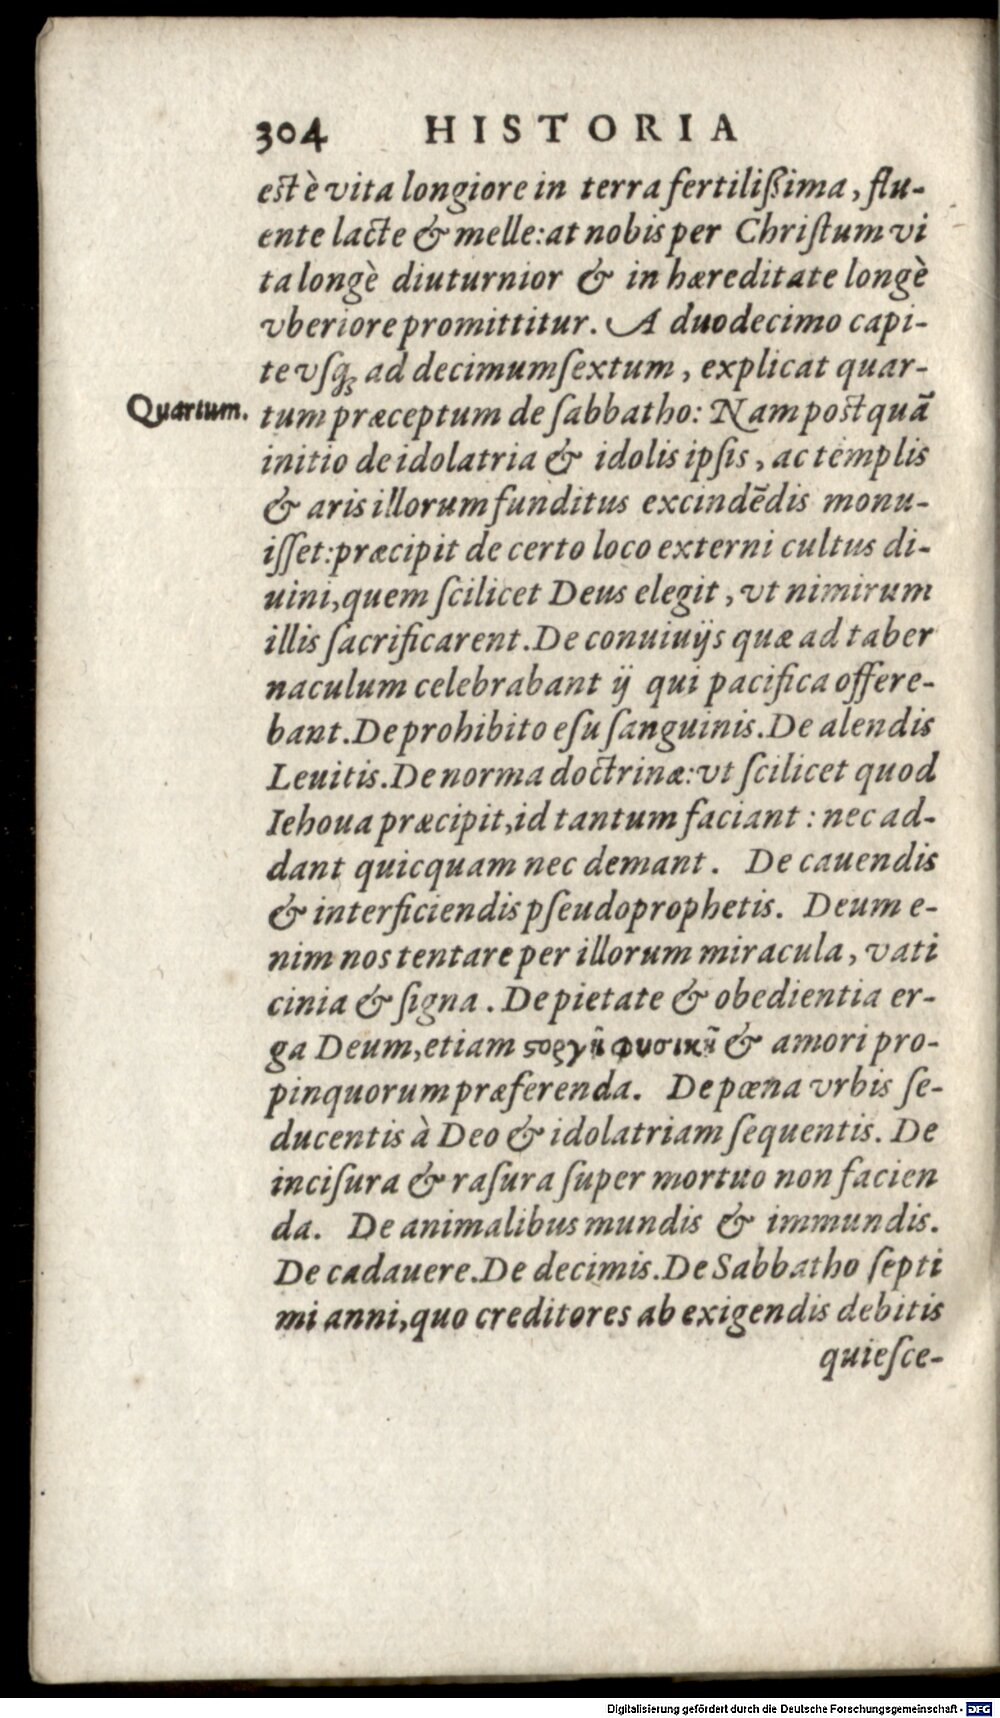 304 HISTORIA
est è vita longiore in terra fertiliſsima, flu-
ente lacte & melle: at nobis per Chriſtum vi
ta longè diuturnior & in hæreditate longè
vberiore promittitur. A duodecimo capi-
te vſq; ad decimumſextum, explicat quar-
Quartum. tum præceptum de ſabbatho: Nam postquã
initio de idolatria & idolis ipſis, ac templis
& aris illorum funditus excindẽdis monu-
iſſet: præcipit de certo loco externi cultus di-
uini, quem ſcilicet Deus elegit, vt nimirum
illis ſacrificarent. De conuiuijs quæ ad taber
naculum celebrabant ij qui pacifica offere-
bant. De prohibito eſu ſanguinis. De alendis
Leuitis. De norma doctrinæ: vt ſcilicet quod
Iehoua præcipit, id tantum faciant: nec ad-
dant quicquam nec demant. De cauendis
& interficiendis pſeudoprophetis. Deum e-
nim nos tentare per illorum miracula, vati
cinia & ſigna. De pietate & obedientia er-
ga Deum, etiam ϛοργῆ φυσικῆ & amori pro-
pinquorum præferenda. De pœna vrbis ſe-
ducentis à Deo & idolatriam ſequentis. De
inciſura & raſura ſuper mortuo non facien
da. De animalibus mundis & immundis.
De cadauere. De decimis. De Sabbatho ſepti
mi anni, quo creditores ab exigendis debitis
quieſce-
Digitalisierung gefördert durch die Deutsche Forschungsgemeinschaft - DFG